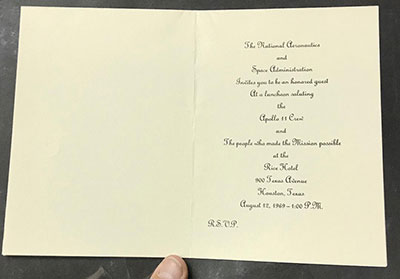 The National Aeronautics
and
Space Administration
Invites you to be an honored guest
At a luncheon saluting
the
Apollo 11 Crew
and
The people who made the Mission possible
at the
Rice Hotel
900 Texas Avenue
Houston, Texas
August 12, 1969 - 1:00 P.M.
R.S.V.P.